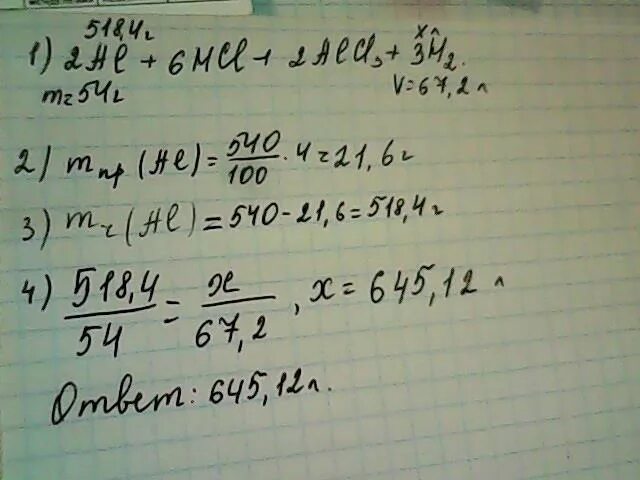 518,4г хл
1) 2Al + 6HCl → 2AlCl₃ + 3H₂.
m=54г V=67,2л
2) mпр (Al) = 540/100 · 4 = 21,6г
3) mч (Al) = 540 - 21,6 = 518,4г
4) 518,4/54 = x/67,2, x = 645,12 л
Ответ: 645,12л.